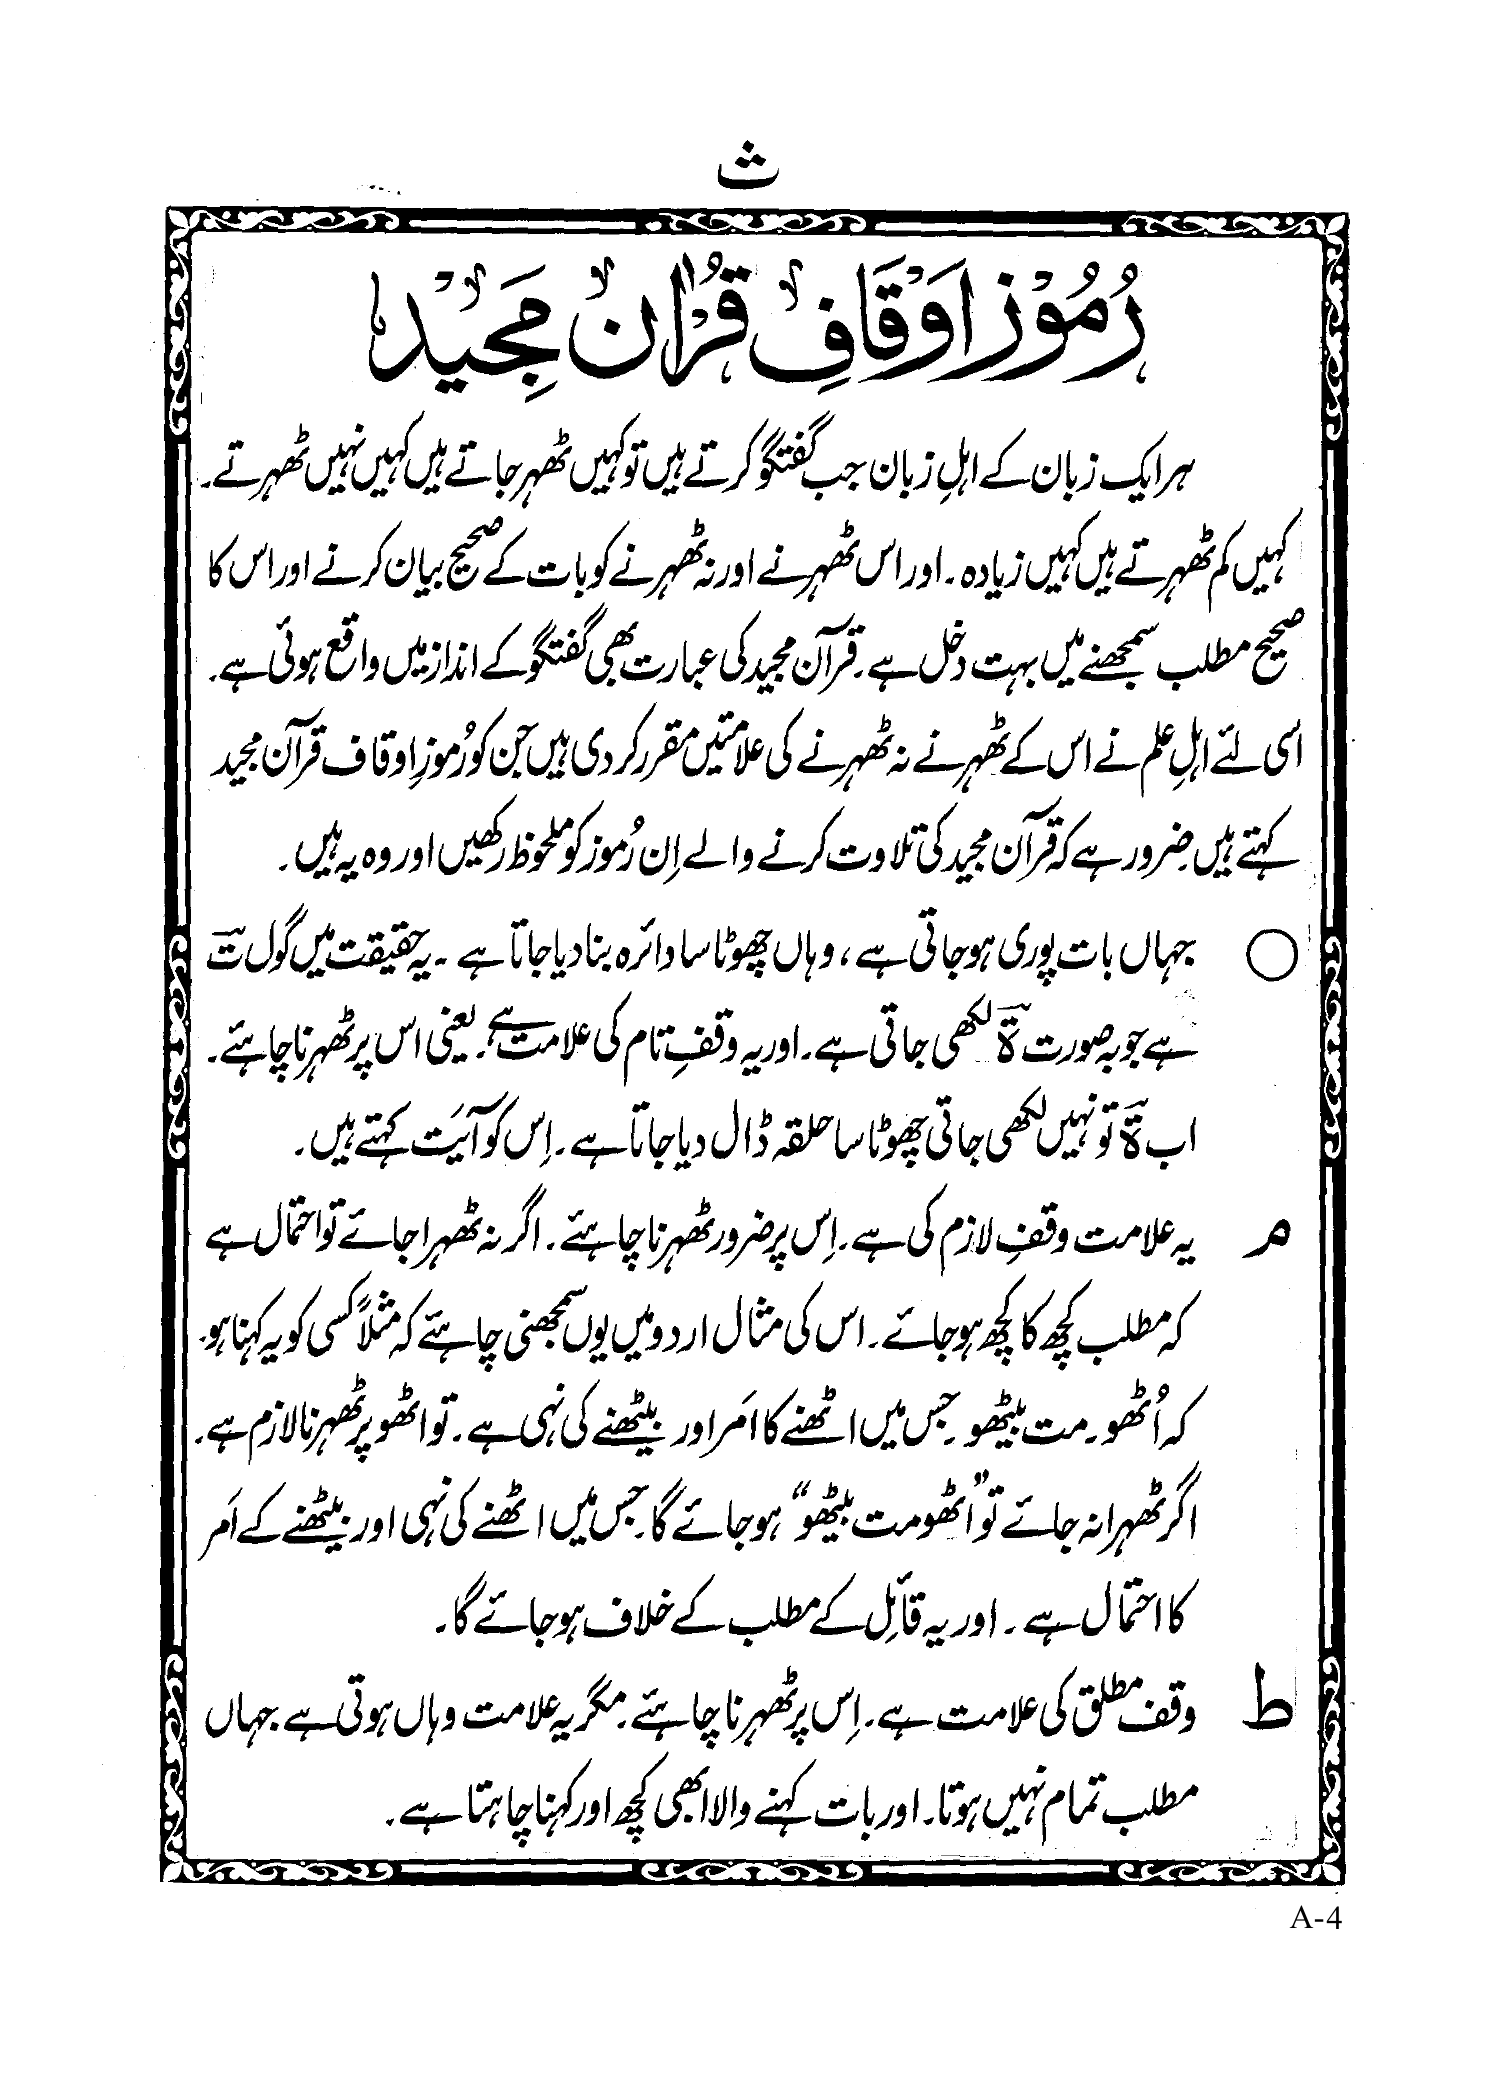 ث
رُمُوْز اَوْقَافِ قُرْاٰن مَجِیْد
ہر ایک زبان کے اہلِ زبان جب گفتگو کرتے ہیں تو کہیں ٹھہر جاتے ہیں کہیں نہیں ٹھہرتے۔
کہیں کم ٹھہرتے ہیں کہیں زیادہ۔ اور اس ٹھہرنے اور نہ ٹھہرنے کو بات کے صحیح بیان کرنے اور اس کا
صحیح مطلب سمجھنے میں بہت دخل ہے۔ قرآن مجید کی عبارت بھی گفتگو کے انداز میں واقع ہوئی ہے۔
اسی لئے اہلِ علم نے اس کے ٹھہرنے نہ ٹھہرنے کی علامتیں مقرر کر دی ہیں جن کو رُموزِ اوقاف قرآن مجید
کہتے ہیں۔ ضرور ہے کہ قرآن مجید کی تلاوت کرنے والے اِن رُموز کو ملحوظ رکھیں اور وہ یہ ہیں۔
○ جہاں بات پوری ہو جاتی ہے، وہاں چھوٹا سا دائرہ بنا دیا جاتا ہے ۔ یہ حقیقت میں گول ت
ہے جو بہ صورت ۃ لکھی جاتی ہے۔ اور یہ وقفِ تام کی علامت ہے۔ یعنی اس پر ٹھہرنا چاہئے۔
اب ۃ تو نہیں لکھی جاتی چھوٹا سا حلقہ ڈال دیا جاتا ہے۔ اِس کو آیَت کہتے ہیں۔
م یہ علامت وقفِ لازم کی ہے۔ اِس پر ضرور ٹھہرنا چاہئے۔ اگر نہ ٹھہرا جائے تو احتمال ہے
کہ مطلب کچھ کا کچھ ہو جائے۔ اس کی مثال اردو میں یوں سمجھنی چاہئے کہ مثلاً کسی کو یہ کہنا ہو۔
کہ اُٹھو۔ مت بیٹھو۔ جس میں اٹھنے کا اَمر اور بیٹھنے کی نہی ہے۔ تو اٹھو پر ٹھہرنا لازم ہے۔
اگر ٹھہرا نہ جائے تو ”اٹھو مت بیٹھو“ ہو جائے گا۔ جس میں اٹھنے کی نہی اور بیٹھنے کے اَمر
کا احتمال ہے ۔ اور یہ قائِل کے مطلب کے خلاف ہو جائے گا۔
ط وقف مطلق کی علامت ہے۔ اِس پر ٹھہرنا چاہئے۔ مگر یہ علامت وہاں ہوتی ہے۔ جہاں
مطلب تمام نہیں ہوتا۔ اور بات کہنے والا ابھی کچھ اور کہنا چاہتا ہے۔
A-4